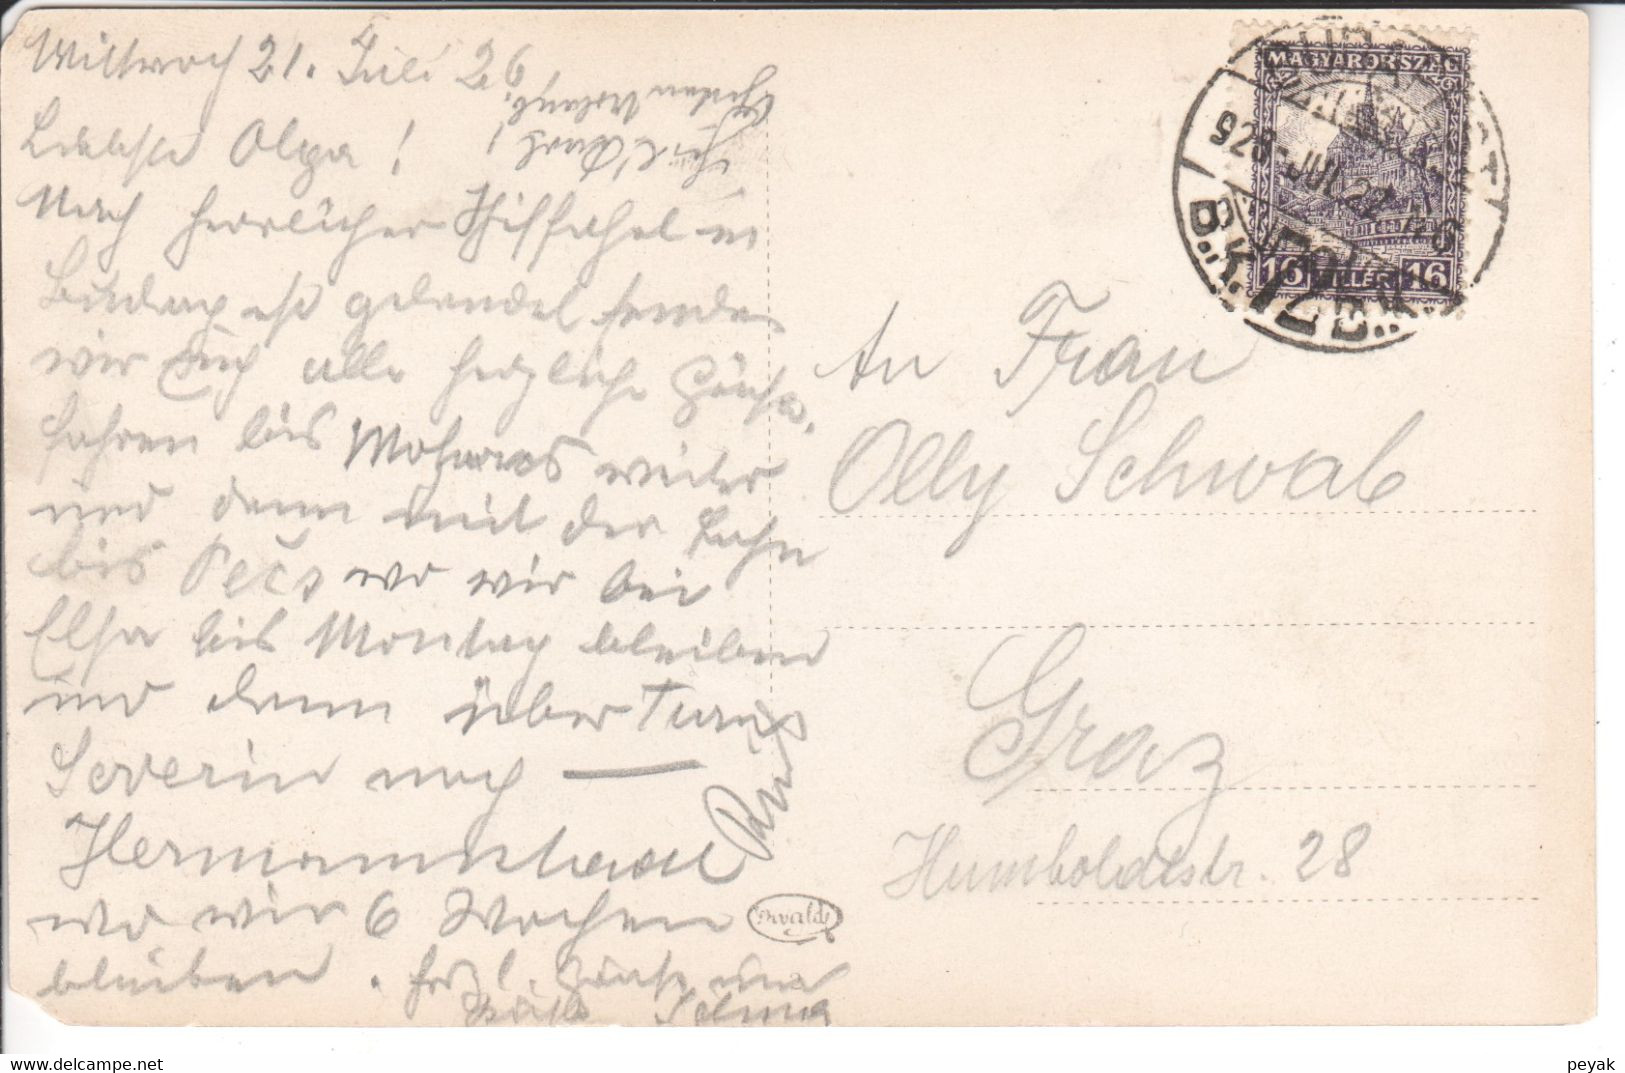 Mittwoch 21. Juli 26
Liebste Olga!
Nach herrlicher Schiffahrt in
Budap ist gelandet senden
wir Euch alle herzliche Grüße.
fahren bis Mohacs weiter
und dann mit der Bahn
bis Pečs wo wir bei
Elsa bis Montag bleiben
und dann über Turn
Severin nach —
Hermannstadt
wo wir 6 Wochen
bleiben. herzl. Grüße und
Küsse Selma
An Frau
Olly Schwab
Graz
Humboldtstr. 28
MAGYARORSZÁG
16 FILLÉR 16
BUDAPEST
926 JUL 22
peyak
delcampe.net